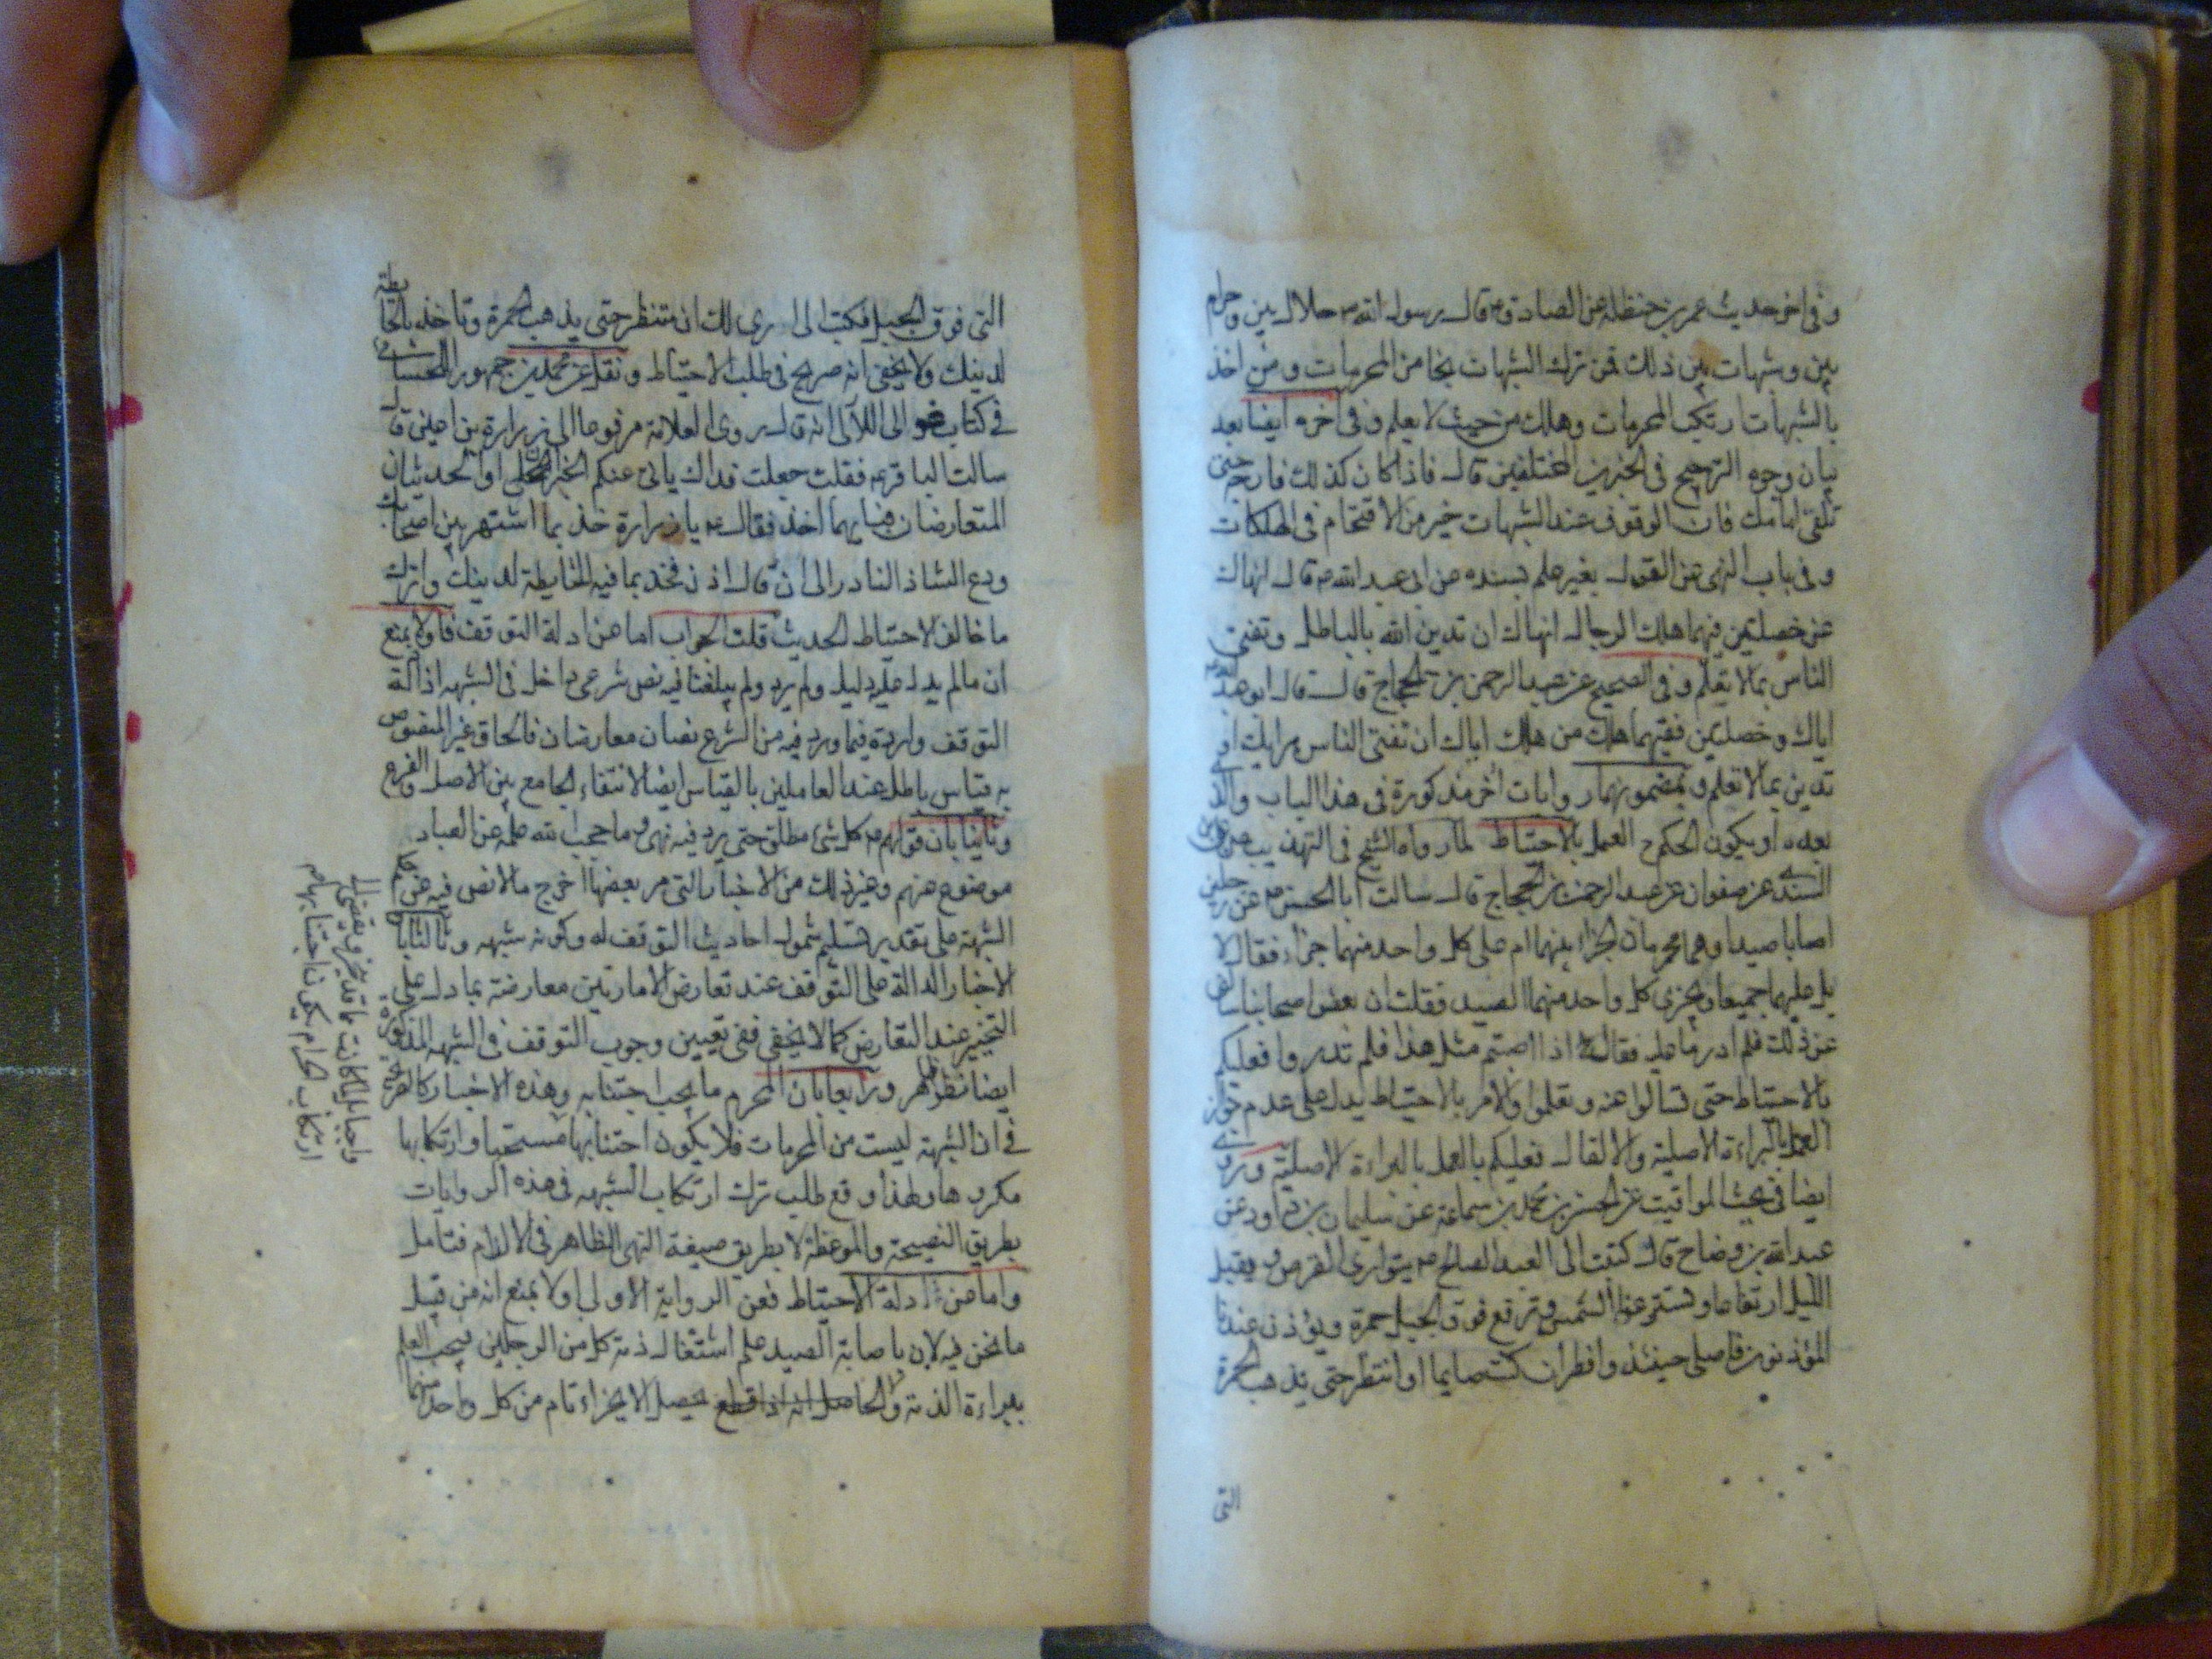 وفى اخر حديث عمر بن حنظلة عن الصادق ع قال رسول الله ص حلال بين وحرام
بين وشبهات بين ذلك فمن ترك الشبهات نجا من المحرمات ومن اخذ
بالشبهات ارتكب المحرمات وهلك من حيث لا يعلم وفى اخره ايضا بعد
بيان وجوه الترجيح فى الخبرين المختلفين قال فاذا كان كذلك فارجه حتى
تلقى امامك فان الوقوف عند الشبهات خير من الاقتحام فى الهلكات
وفى باب النهى عن القول بغير علم بسنده عن ابى عبد الله ع قال انهاك
عن خصلتين فيهما هلك الرجال انهاك ان تدين الله بالباطل وتفتى
الناس بما لا تعلم وفى الصحيح عن عبد الرحمن بن الحجاج قال قال ابو عبد الله
اياك وخصلتين ففيهما هلك من هلك اياك ان تفتى الناس برايك او
تدين بما لا تعلم وبمضمونهما روايات اخر مذكورة فى هذا الباب والذى
بعده او يكون الحكم ح العمل بالاحتياط لما رواه الشيخ فى التهذيب
السند عن صفوان عن عبد الرحمن بن الحجاج قال سالت ابا الحسن ع عن رجلين
اصابا صيدا وهما محرمان الجزاء بينهما ام على كل واحد منهما جزاء فقال لا
بل عليهما جميعا ويجزى كل واحد منهما الصيد فقلت ان بعض اصحابنا سالنى
عن ذلك فلم ادر ما عليه فقال اذا اصبتم مثل هذا فلم تدروا فعليكم
بالاحتياط حتى تسالوا عنه وتعلموا والامر بالاحتياط يدل على عدم جواز
العمل بالبراءة الاصلية والا لقال فعليكم بالعمل بالبراءة الاصلية وروى
ايضا فى بحث المواقيت عن الحسن بن محمد بن سماعة عن سليمان بن داود عن
عبد الله بن وضاح قال كتبت الى العبد الصالح ع يتوارى القرص ويقبل
الليل ارتفاعا وتستتر عنا الشمس وترتفع فوق الجبل حمرة ويؤذن عندنا
المؤذنون فاصلى حينئذ وافطر ان كنت صايما او انتظر حتى يذهب الحمرة
التى
التى فوق الجبل فكتب الى ارى لك ان تنتظر حتى يذهب الحمرة وتاخذ بالحائطة
لدينك ولا يخفى انه صريح فى طلب الاحتياط ونقل عن محمد بن جمهور الاحسائى
فى كتاب غوالى اللآلى انه قال روى العلامة مرفوعا الى زرارة بن اعين قال
سالت الباقر ع فقلت جعلت فداك ياتى عنكم الخبران او الحديثان
المتعارضان فبايهما اخذ فقال ع يا زرارة خذ بما اشتهر بين اصحابك
ودع الشاذ النادر الى ان قال اذن فخذ بما فيه الحايطة لدينك واترك
ما خالف الاحتياط الحديث قلت الجواب اما عن ادلة التوقف فاولا بمنع
ان ما لم يدل عليه دليل ولم يرد ولم يبلغنا فيه نص شرعى داخل فى الشبهه اذ ادلة
التوقف واردة فيما ورد فيه من الشرع نصان معارضان فالحاق غير المنصوص
به قياس باطل عند العاملين بالقياس ايضا لانتفاء الجامع بين الاصل والفرع
وثانيا بان قولهم ع كل شئ مطلق حتى يرد فيه نهى وما حجب الله علمه عن العباد
موضوع عنهم وغير ذلك من الاخبار التى مر بعضها اخرج ما لا نص فيه عن حكم
الشبهة على تقدير تسليم شمول احاديث التوقف له وكونه شبهه وثالثا بان
الاخبار الدالة على التوقف عند تعارض الامارتين معارضة بما دل على
التخيير عند التعارض كما لا يخفى ففى تعيين وجوب التوقف فى الشبهه المذكورة
ايضا نظر ظاهر ورابعا بان المحرم ما يجب اجتنابه وهذه الاخبار كالصريحة
فى ان الشبهة ليست من المحرمات فلا يكون اجتنابها مستحبا وارتكابها
مكروها ولهذا وقع طلب ترك ارتكاب الشبهه فى هذه الروايات
بطريق النصيحة والموعظة لا بطريق صيغة النهى الظاهر فى الالزام فتامل
واما عن ادلة الاحتياط فعن الرواية الاولى اولا بمنع انه من قبيل
ما نحن فيه لان باصابة الصيد علم اشتغال ذمة كل من الرجلين فيجب العلم
ببراءة الذمة ولا يحصل الا بجزاء تام من كل واحد منهما
ارتكاب الحرام يكون اجتنابها